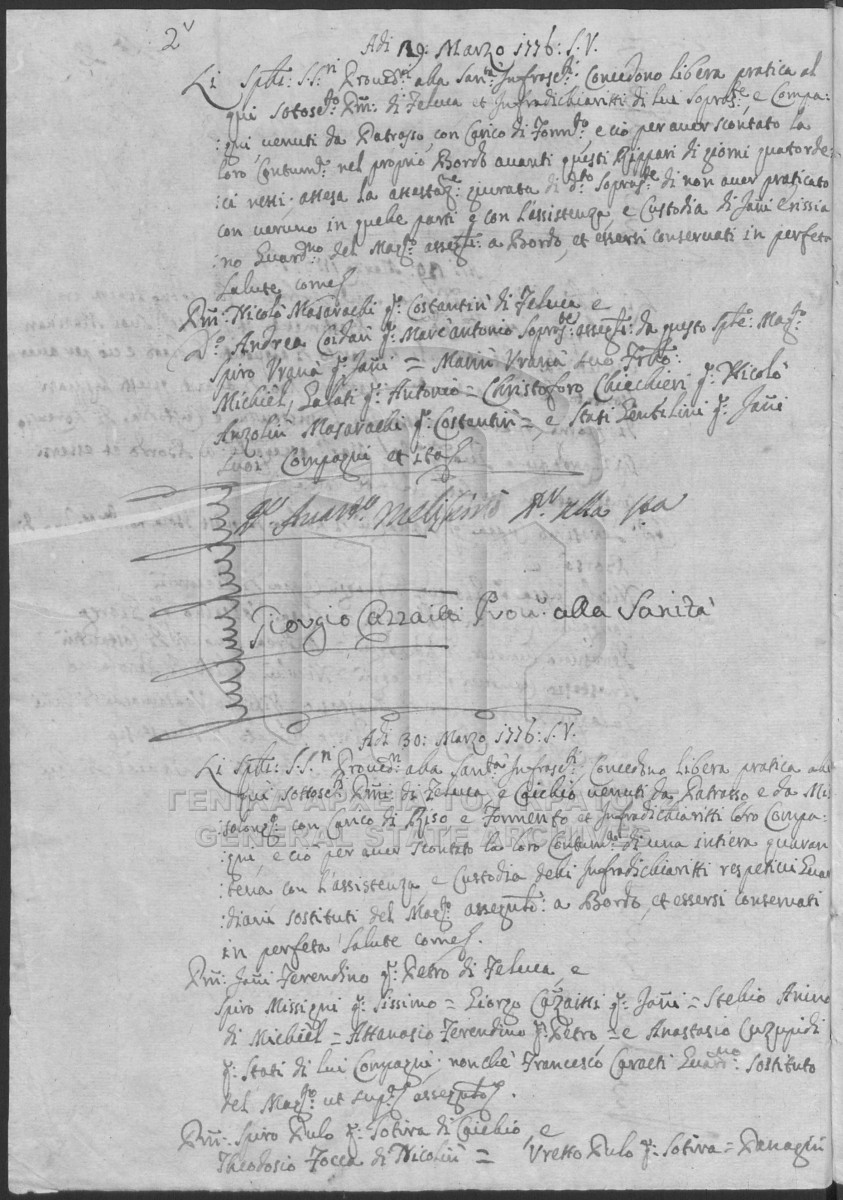 2v
Adi 19: Marzo 1776: S.V.
Li Spti: S.S:ri Proued:ri alla San:tà Infrasc:ti Concedono libera pratica al
qui sotosc:to Prñ: di Feluca et Infradichiaritti di lui Sopras:te, e Compa-
:gni, venuti da Patrasso, con Carico di Form:to, e ciò per auer scontato la
loro Contum:a nel proprio Bordo auanti questi Rippari di giorni quatorde:
:ci netti, attesa la attestaz:e giurata di d:to Sopras:te di non auer praticato
con ueruno in quele parti q con l'assistenza, e Custodia di Jañi Crissia
no Guard:no del Mag:to assegti: a Bordo, et essersi conseruati in perfeta
Salute come
Prñ: Nicolò Masarachi q: Costantin di Feluca e
D:o Andrea Coidan q: Marc'antonio Sopras:te assegti: da questo Spte: Mag:to
Spiro Vranà q: Jañi = Marin Vranà suo Frtto:
Michiel Galati q: Antonio = Christoforo Chiachieri q: Nicolò
Anzolin Masarachi q: Costantin =, e Stati Gentilini q: Jañi
suoi Compagni et
alla
Giorgio Cazzaiti Prou:r alla Sanità
Adi 30: Marzo 1776: S.V.
Li Spti: S.S:ri Proued:ri alla San:tà Infrasc:ti Concedono libera pratica alli
qui sottosc:ti Prñi di Feluca, e Caichio uenuti da Patrasso e da Mi
solong:o con Carico di Riso e Formento et Infradichiaritti loro Compa:
gni, e ciò per auer Scontato la loro Contum:a di una intiera quaran
tena con l'assistenza, e Custodia delli Infradichiaritti respetiui Guar
:diani sostituti del Mag:to assegnti: a Bordo, et essersi conseruati
in perfeta Salute come
Prñ: Jañi Ferendino q: Petro di Feluca e
Spiro Missigni q: Sissimo = Giorgo Cazzaitti q: Jañi = Stelio Anino
di Michiel = Attanasio Ferendino q: Petro = e Anastasio Cuzupidi
q: Stati di lui Compagni, nonchè Francesco Caratti Guard:no Sostituto
del Mag:to ut sup:a assegnto
Prñ: Spiro Pulo q: Sotira di Caichio, e
Theodosio Focca di Nicolin = Vretto Pulo q: Sotira = Panagin
ΓΕΝΙΚΑ ΑΡΧΕΙΑ ΤΟΥ ΚΡΑΤΟΥΣ
GENERAL STATE ARCHIVES